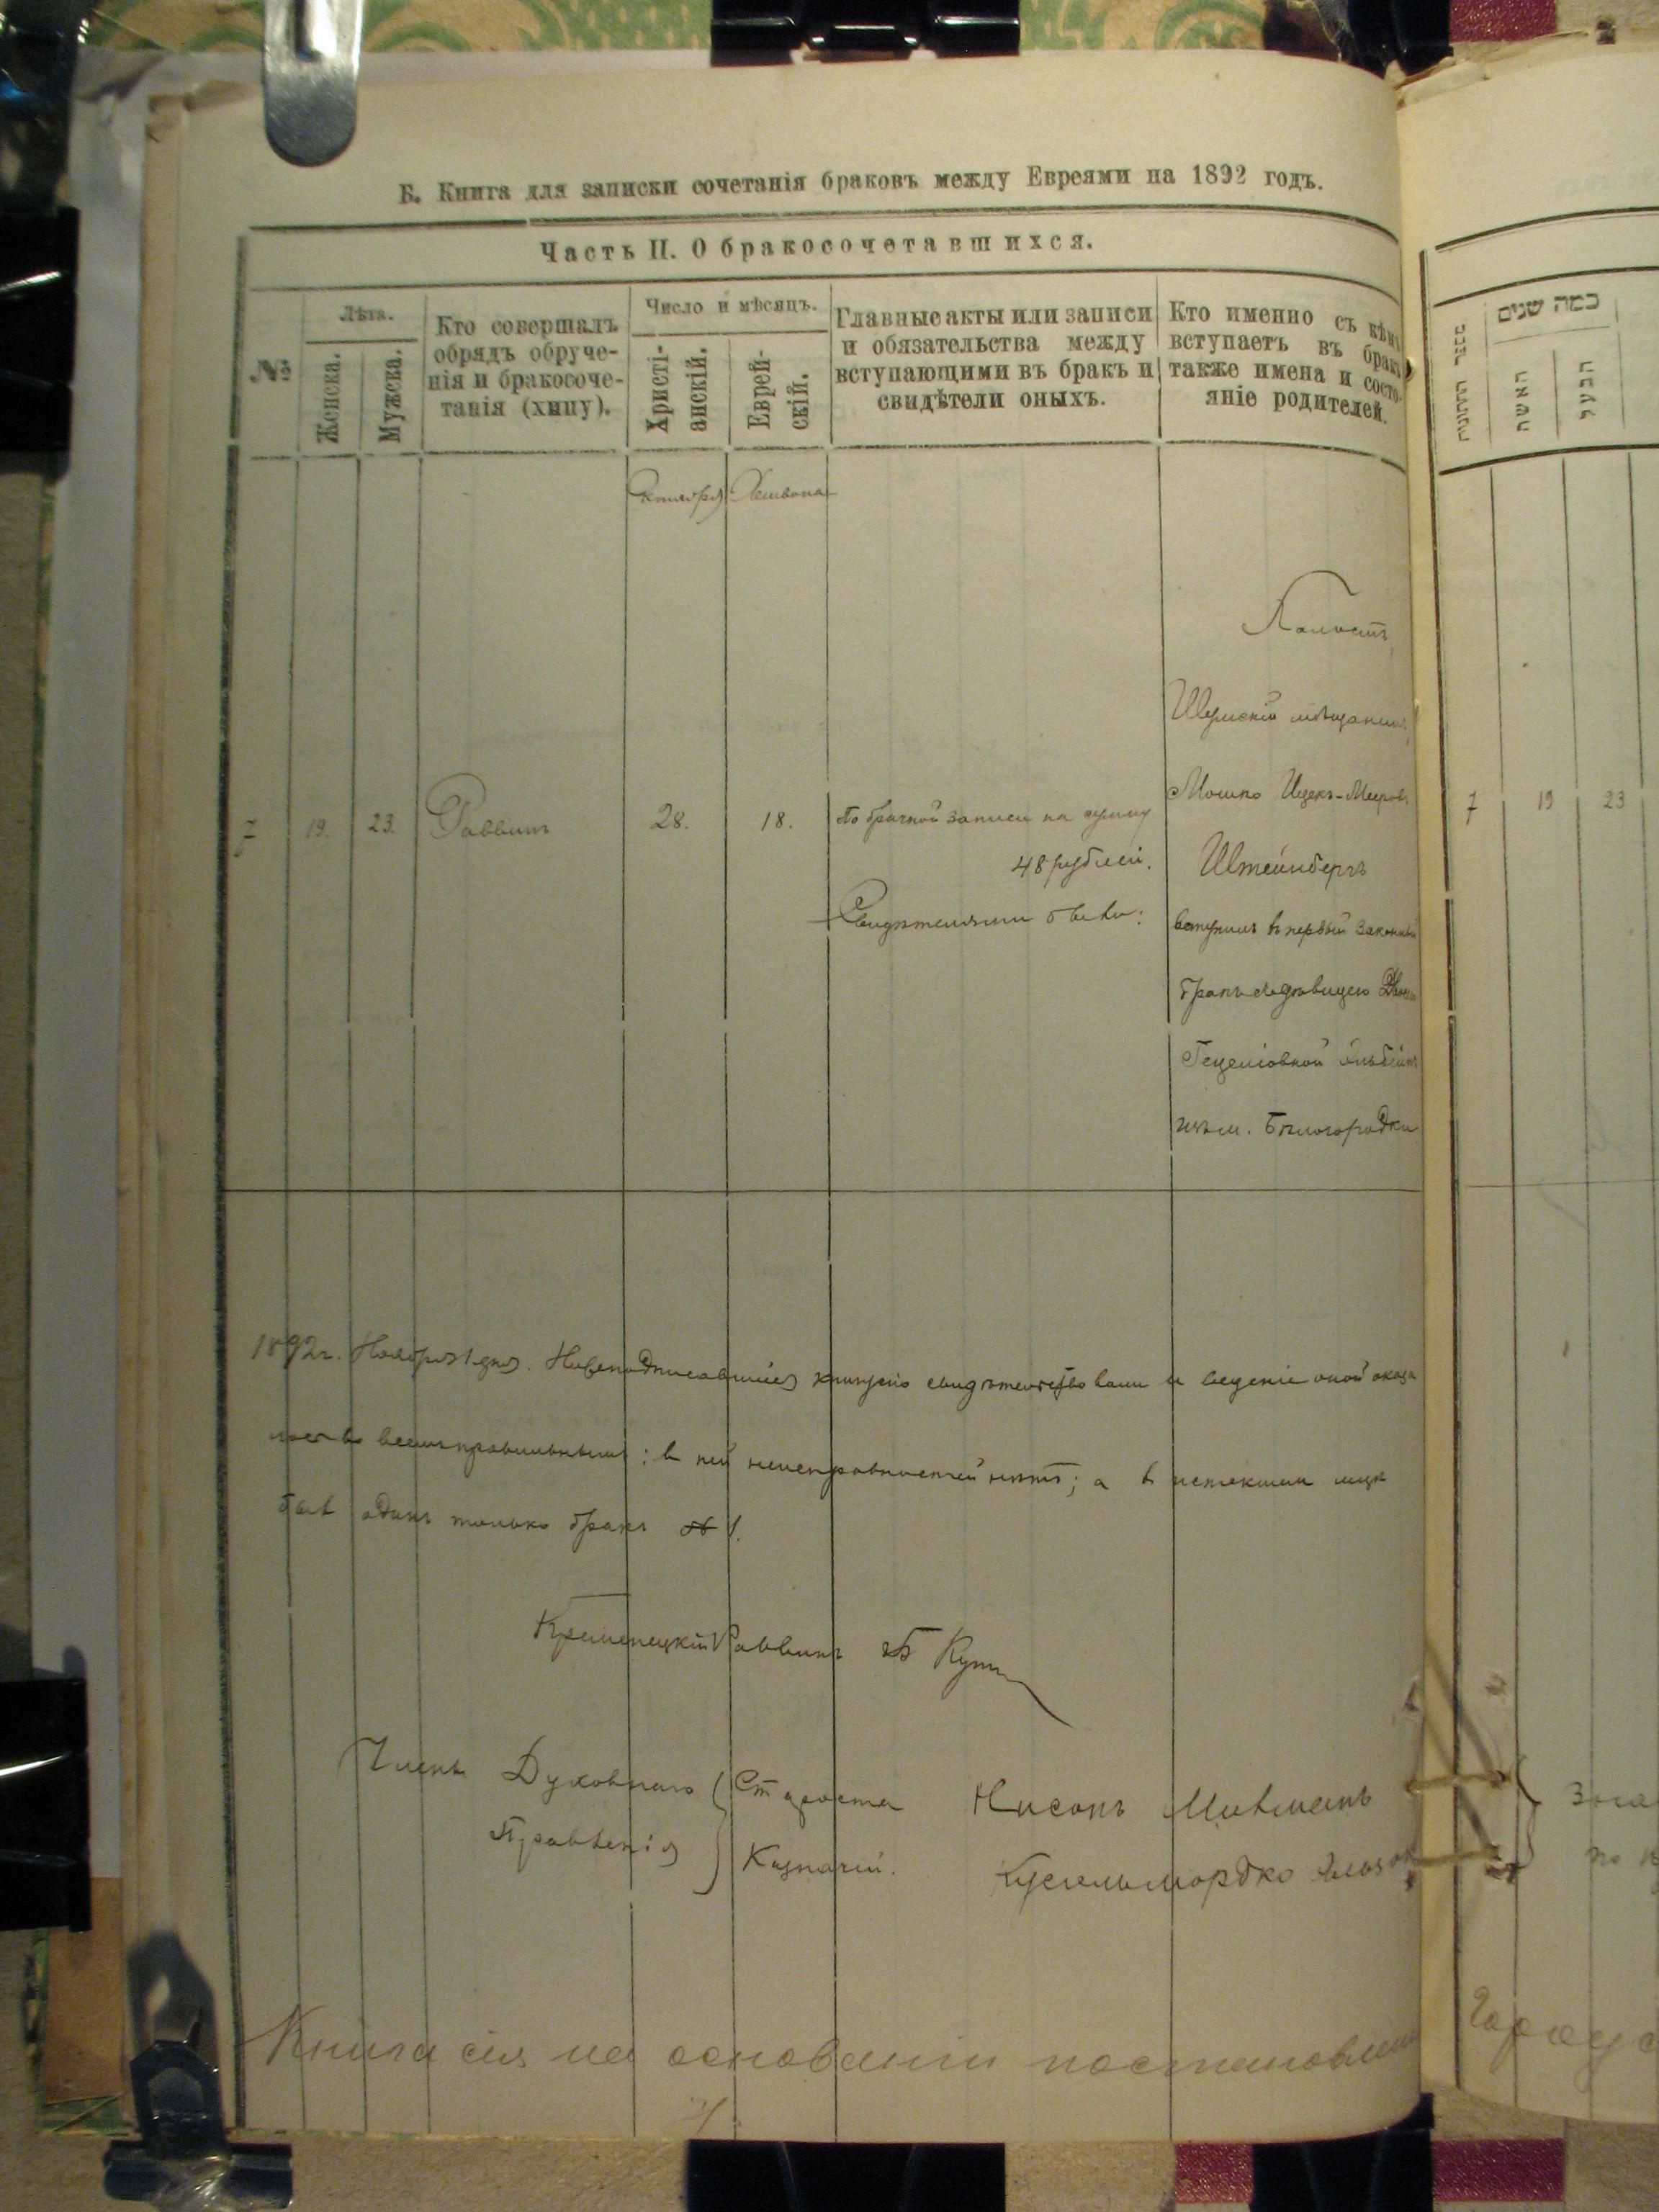 Б. Книга для записки сочетанія браковъ между Евреями на 1892 годъ.
Часть II. О бракосочетавшихся.
№
Лѣта.
Женска.
Мужска.
Кто совершалъ
обрядъ обруче-
нія и бракосоче-
танія (хипу).
Число и мѣсяцъ.
Христі-
анскій.
Еврей-
скій.
Главные акты или записи
и обязательства между
вступающими въ бракъ и
свидѣтели оныхъ.
Кто именно съ кѣмъ
вступаетъ въ бракъ
также имена и состо-
яніе родителей.
Октября
Хешвона
7
19.
23.
Раввинъ
28.
18.
По брачной записи на сумму
48 рублей.
Свидѣтелями были:
Шумскій мѣщанинъ
Мошко Ицекъ-Мееров
Штейнбергъ
вступилъ въ первый законный
бракъ съ дѣвицею
Гецелiовной
изъ м. Бѣлогородки
1892г. Ноября 1 дня. Нижеподписавшiеся книгу сiю свидѣтельствовали и веденiе оной оказа
лось во всемъ правильнымъ: въ ней неисправностей нѣтъ; а в истекшем мцѣ
был одинъ только бракъ № 1.
Кременецкiй Раввинъ Б
Члены Духовнаго
Правленiя
Староста Нисонъ
Казначей. Кусельмордко
Книга сiя на основанiи постановлен
מספר החתונות
כמה שנים
האשה
הבעל
7
19
23